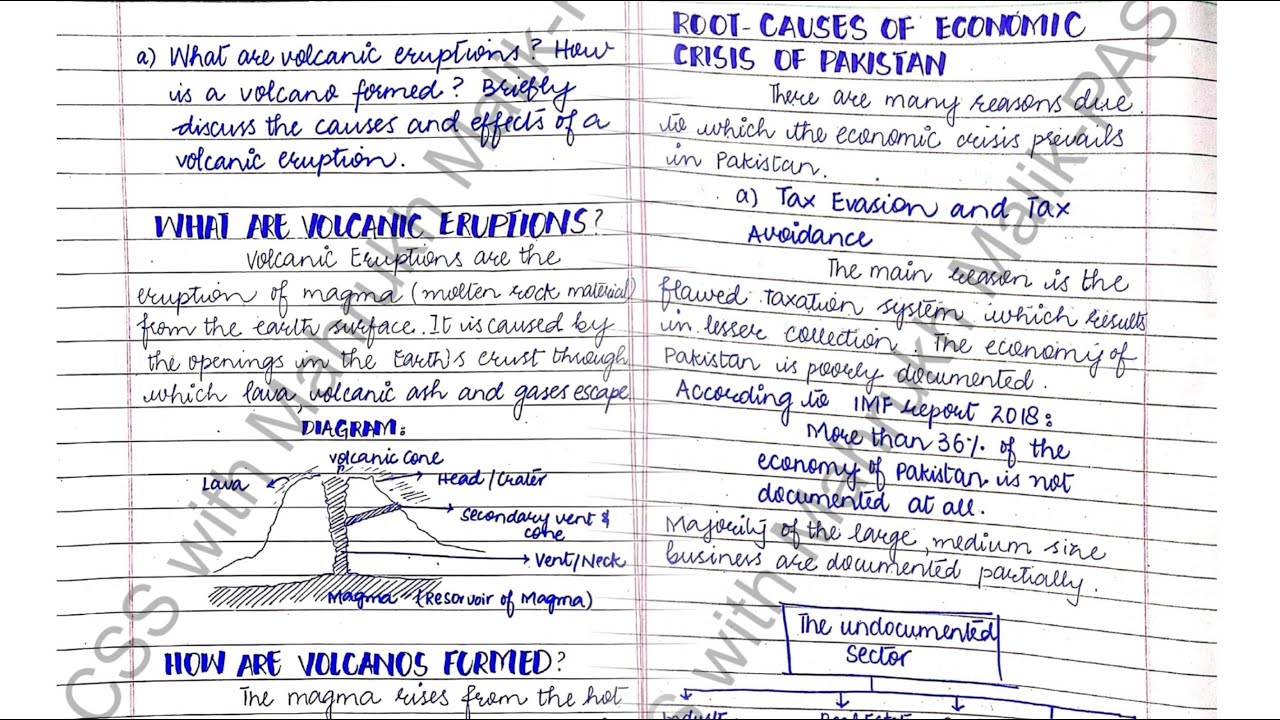 a) What are volcanic eruptions? How
is a volcano formed? Briefly
discuss the causes and effects of a
volcanic eruption.
WHAT ARE VOLCANIC ERUPTIONS?
Volcanic Eruptions are the
eruption of magma (molten rock material)
from the earth surface. It is caused by
the openings in the Earth's crust through
which lava, volcanic ash and gases escape
DIAGRAM:
volcanic cone
Lava
Head/Crater
Secondary vent &
cone
Vent/Neck
Magma (Resorvoir of Magma)
HOW ARE VOLCANOS FORMED?
The magma rises from the hot
ROOT-CAUSES OF ECONOMIC
CRISIS OF PAKISTAN
There are many reasons due
to which the economic crisis prevails
in Pakistan.
a) Tax Evasion and Tax
Avoidance
The main reason is the
flawed taxation system which results
in lesser collection. The economy of
Pakistan is poorly documented.
According to IMF report 2018:
More than 36% of the
economy of Pakistan is not
documented at all.
Majority of the large, medium size
business are documented partially.
The undocumented
Sector
CSS with Mahrukh Malik-PAS